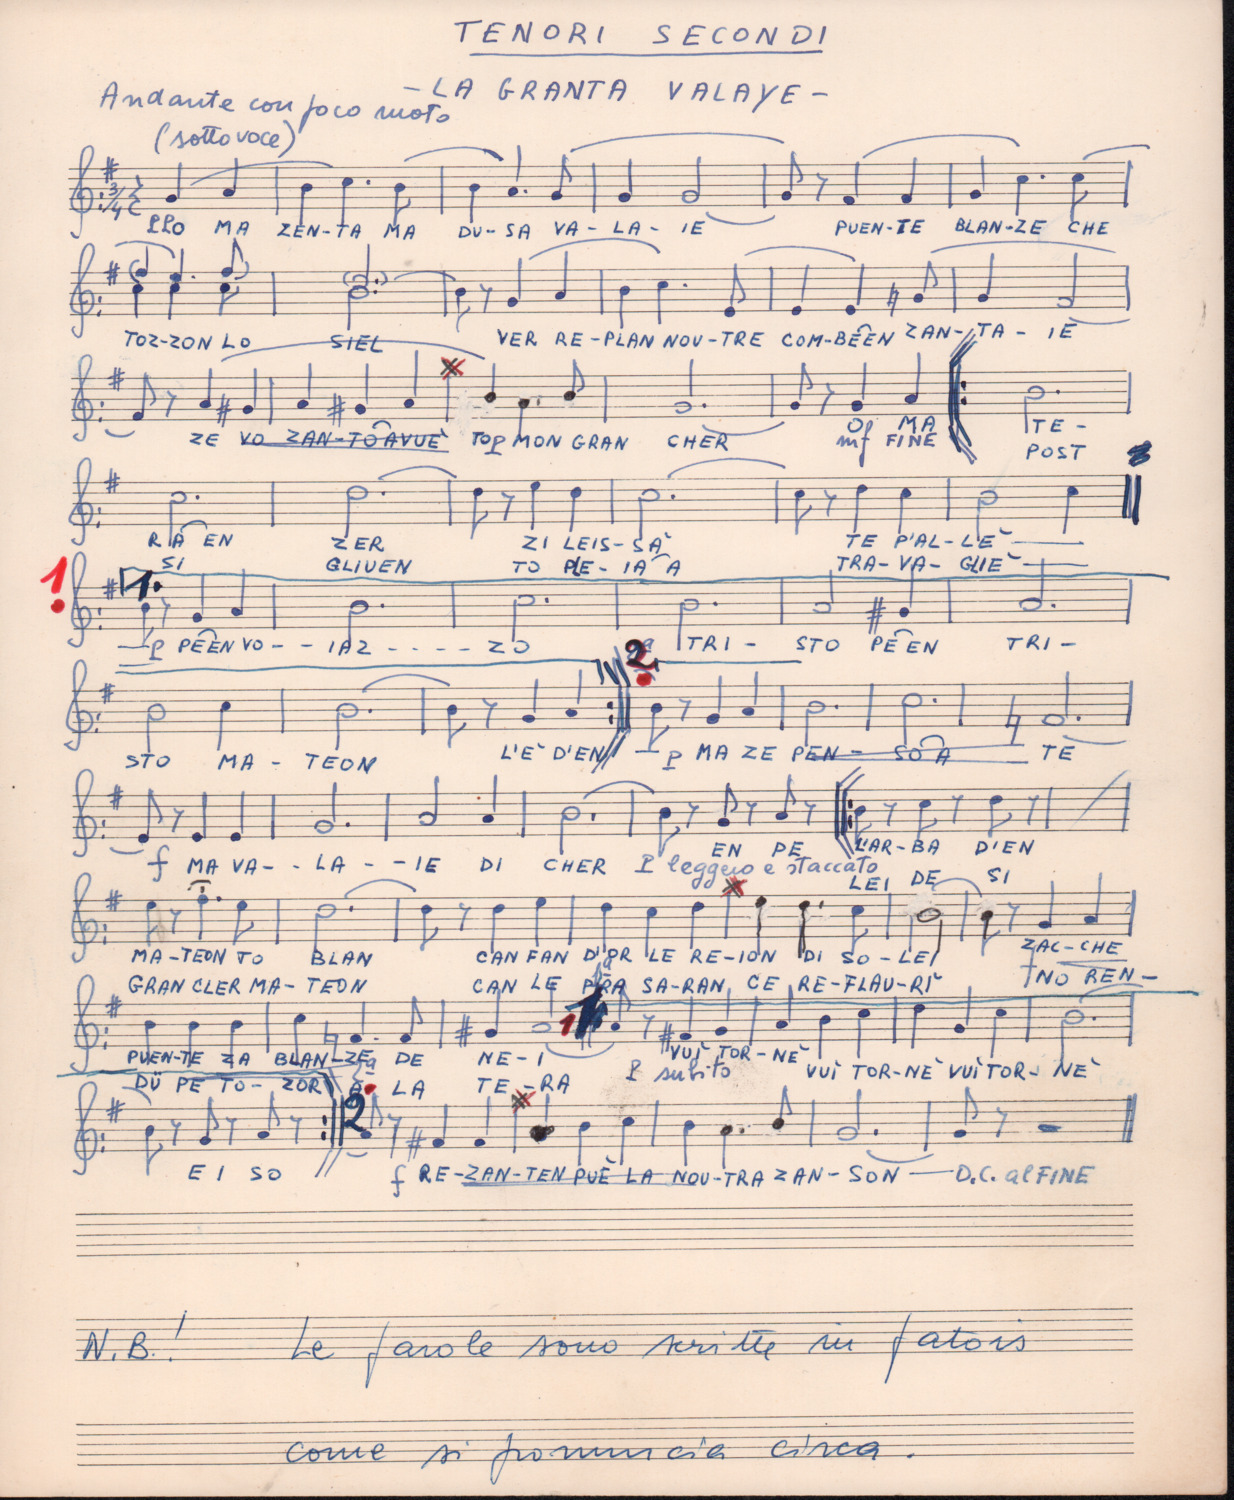 TENORI SECONDI
- LA GRANTA VALAYE -
Andante con poco moto
(sottovoce)
3/4
PLO MA ZEN-TA MA DU-SA VA-LA-IE PUEN-TE BLAN-ZE CHE
TOZ-ZON LO SIEL VER RE-PLAN NOU-TRE COM-BÊEN ZAN-TA-IE
ZE VO ZAN-TO AVUÈ TOP MON GRAN CHER OI MA TE-
mf FINE POST
RA EN ZER ZI LEIS-SÀ TE P'AL-LÈ
SI GLIUEN TO PLE-IA A TRA-VA-GLIÈ
1.
P PÊEN VO - - IAZ - - - - ZO TRI - STO PÊEN TRI -
2ª
STO MA - TEON L'È D'EN P MA ZE PEN - SO A TE
f MA VA - - LA - - IE DI CHER EN PE L'AR-BA D'EN
P leggero e staccato
LEI DE SI
MA-TEON TO BLAN CAN FAN D'OR LE RE-ION DI SO-LEI ZAC-CHE
GRAN CLER MA-TEON CAN LE PRA SA-RAN CE RE-FLAU-RÌ NO REN-
1ª
PUEN-TE ZA BLAN-ZE DE NE-I VUÌ TOR-NÈ
P subito VUÌ TOR-NÈ VUÌ TOR-NÈ
DÜ PE TO-ZOR A LA TE-RA
2ª
E I SO f RE-ZAN-TEN PUÈ LA NOU-TRA ZAN-SON D.C. al FINE
N.B.! Le parole sono scritte in patois
come si pronuncia circa.